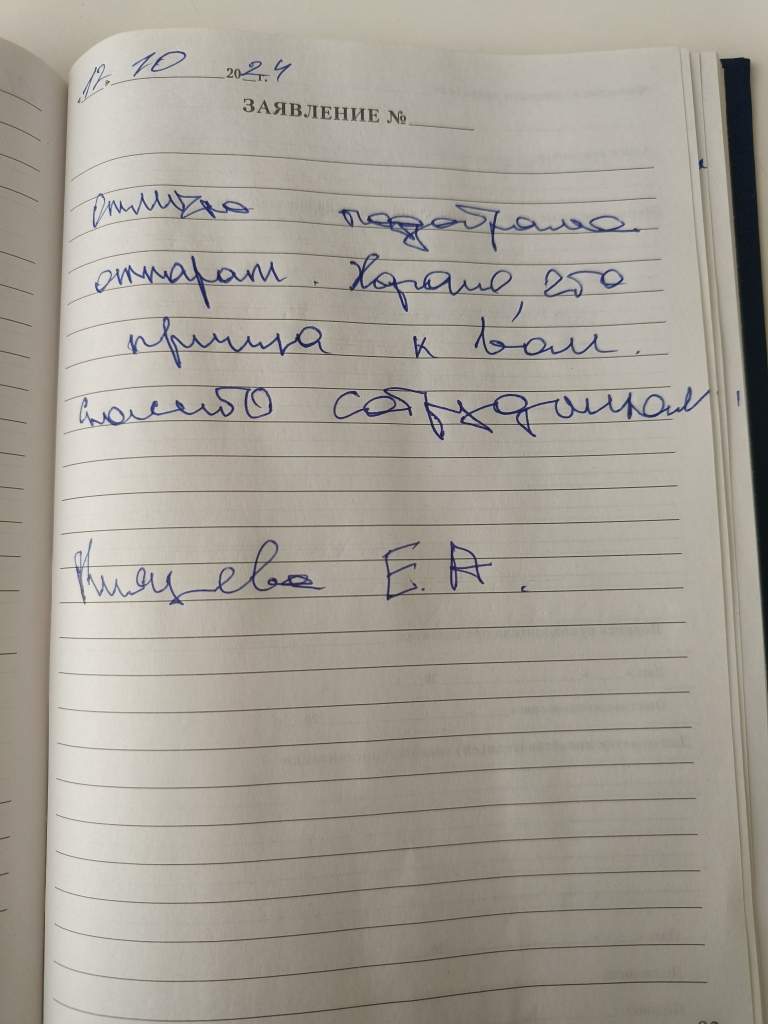 17. 10 2024 г.
ЗАЯВЛЕНИЕ №
Отлично подобрали
аппарат. Хорошо, что
пришла к Вам.
спасибо сотрудникам!
Князева Е. А.